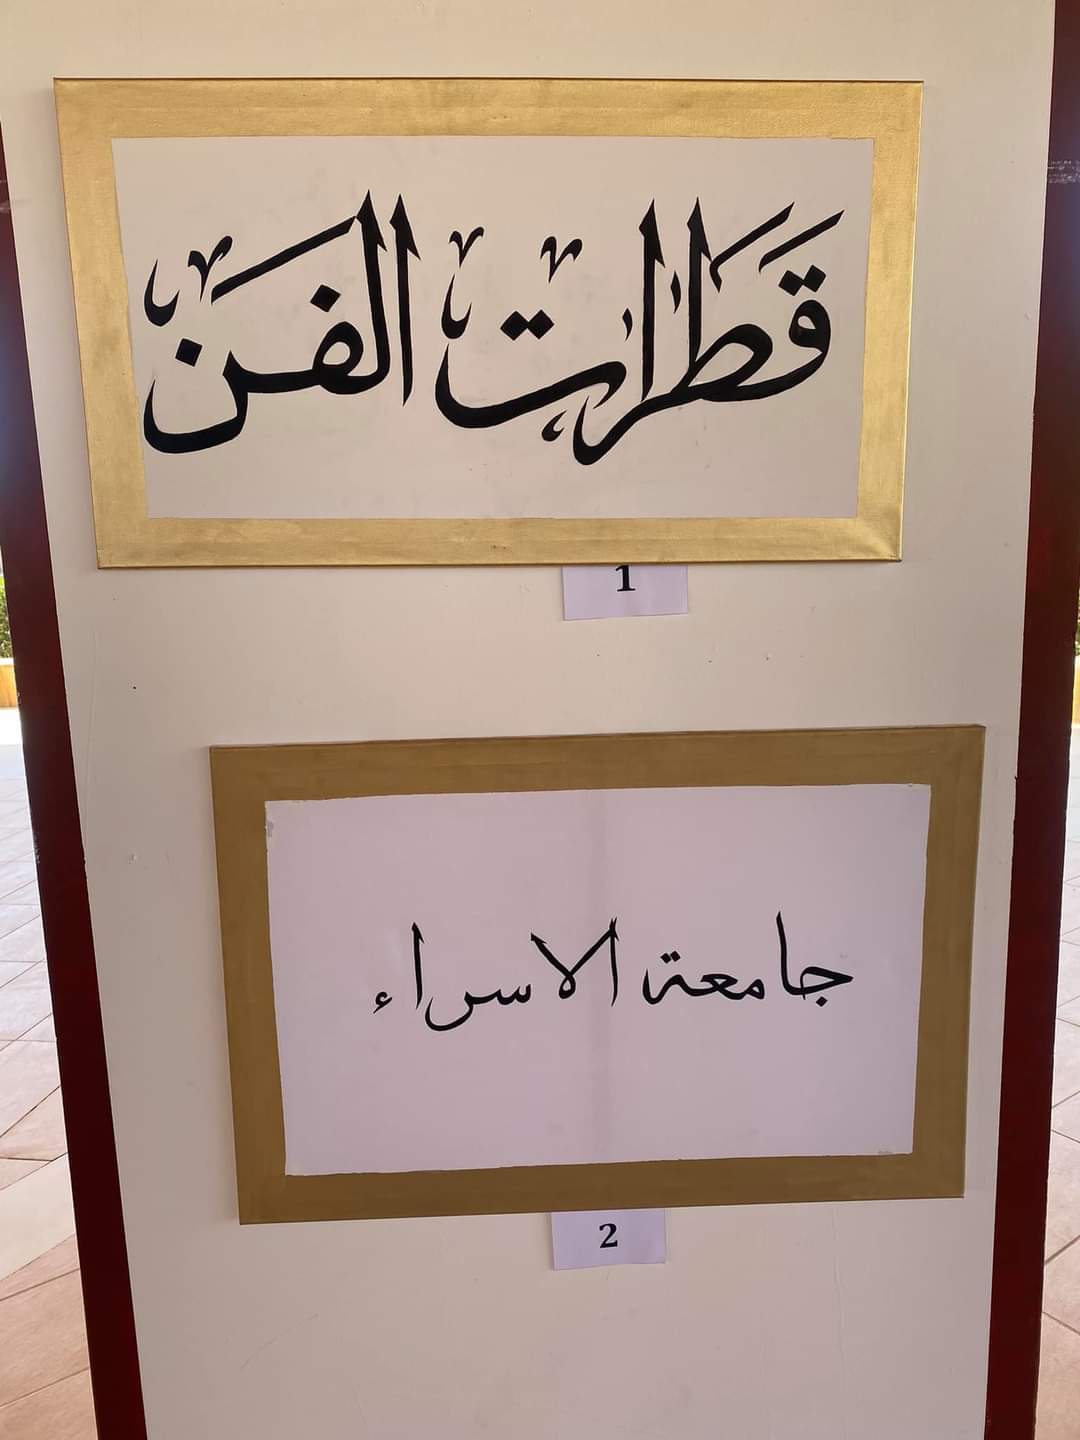 قطرات الفن
1
جامعة الاسراء
2